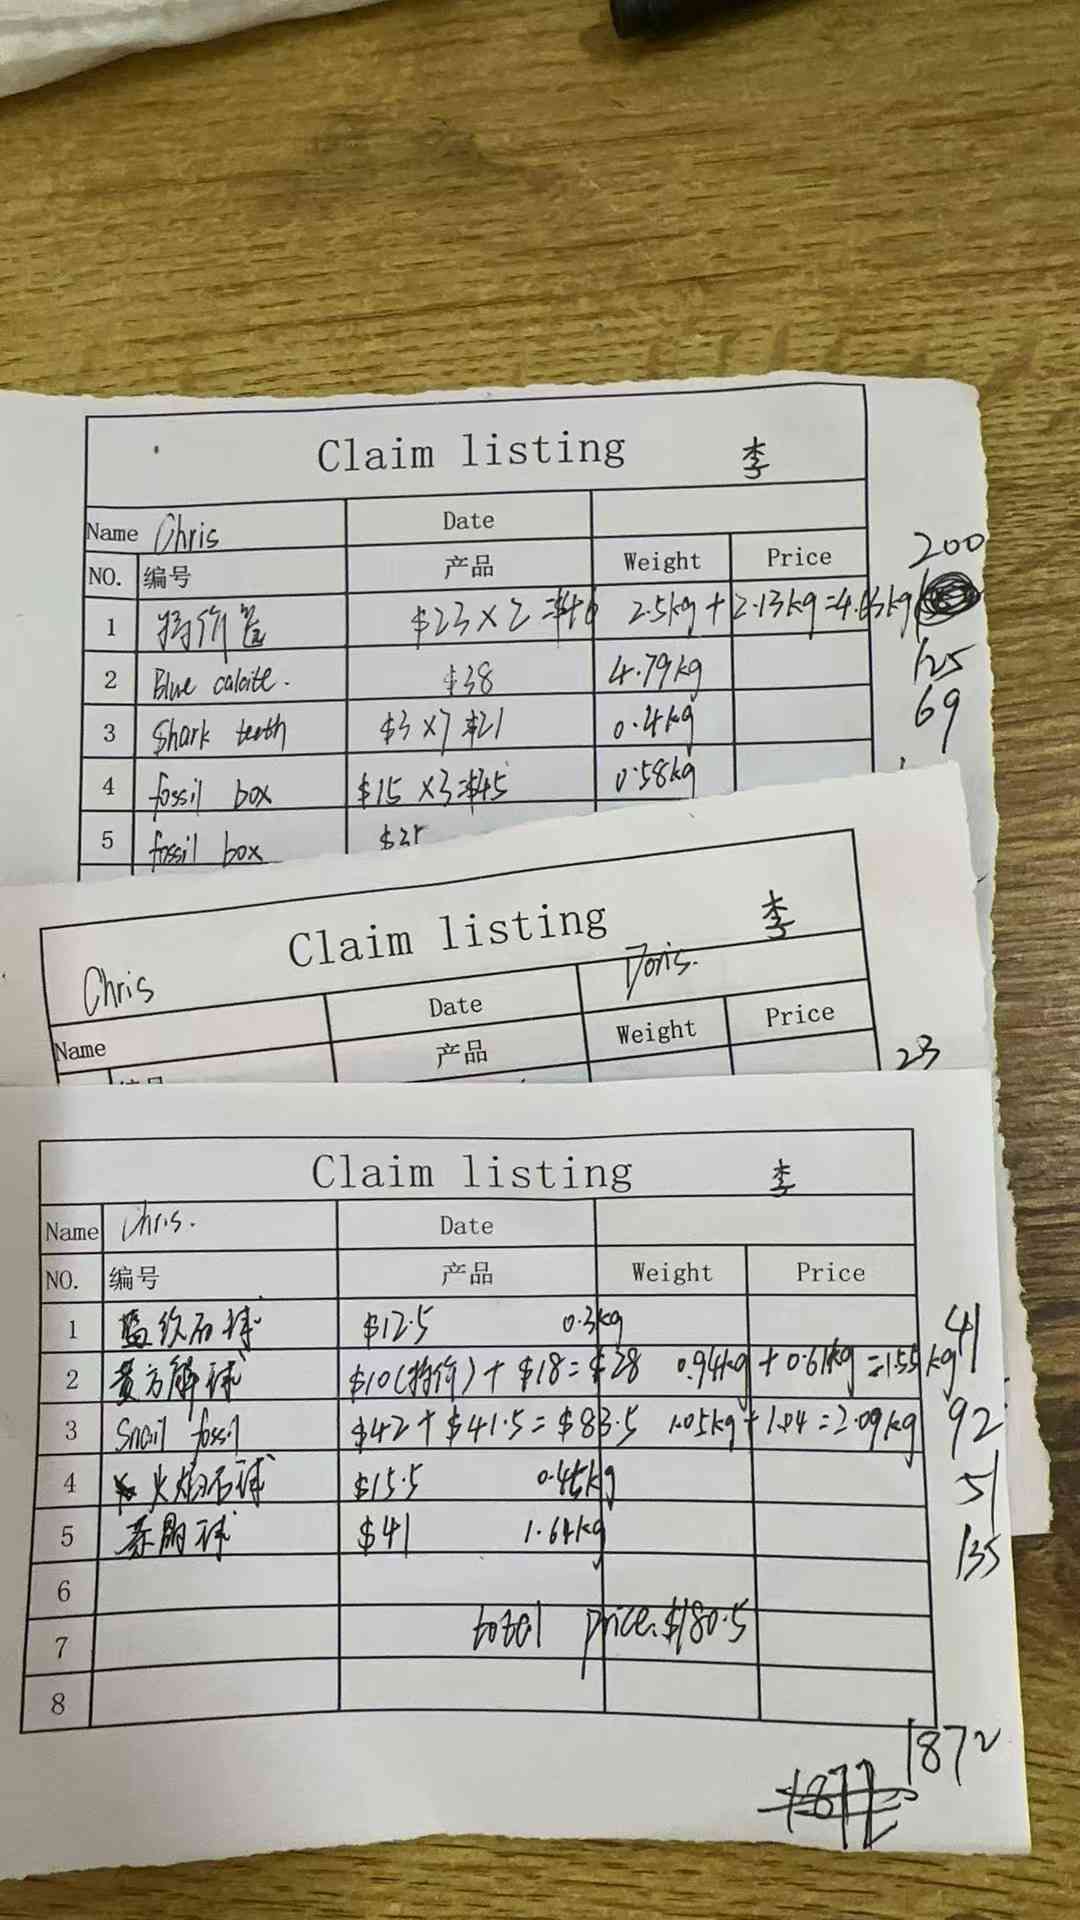 Claim listing 李
Name Chris Date
NO. 编号 产品 Weight Price 200
1 特价筐 $23×2=$46 2.5kg+2.13kg=4.63kg
2 Blue calcite. $38 4.79kg 125
3 Shark teeth $3×7 $21 0.4kg 69
4 fossil box $15×3=$45 0.58kg
5 fossil box $35
Claim listing 李
Chris Doris.
Name Date
产品 Weight Price
编号 23
Claim listing 李
Name Chris. Date
NO. 编号 产品 Weight Price
1 蓝纹石球 $12.5 0.3kg 41
2 黄方解球 $10(特价)+$18=$28 0.94kg+0.61kg=1.55kg
3 Snail fossil $42+$41.5=$83.5 1.05kg+1.04=2.09kg 92
4 火焰石球 $15.5 0.45kg 51
5 $41 1.64kg 135
6
7 total price:$180.5
8
1872
1872